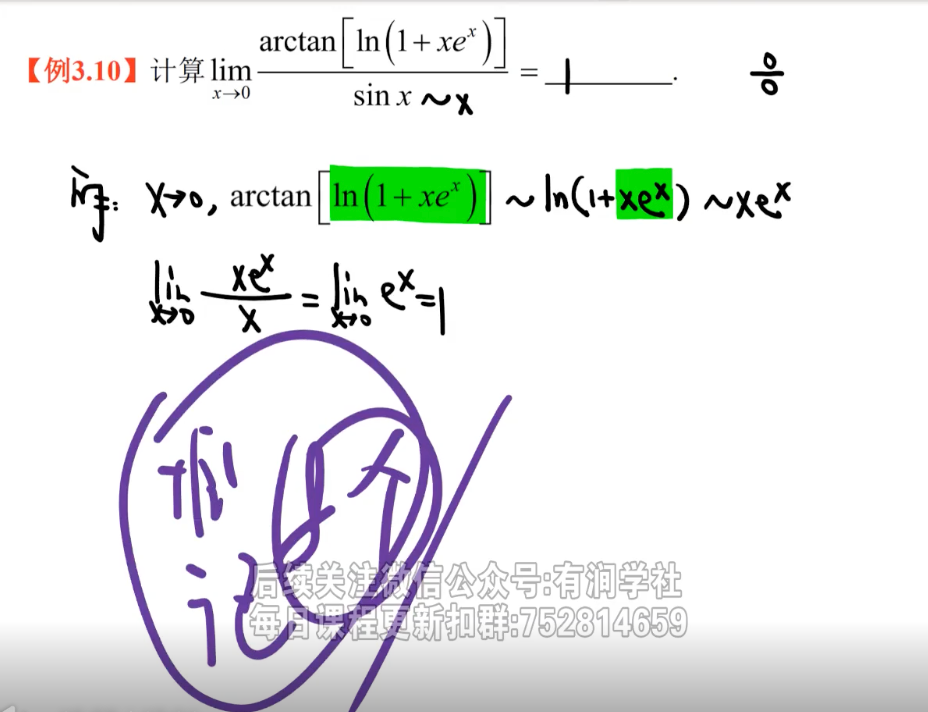 【例3.10】计算 lim x→0 arctan[ln(1+xe^x)] / sin x ~x = 1 . 0/0
解: x→0, arctan[ln(1+xe^x)] ~ ln(1+xe^x) ~ xe^x
lim x→0 xe^x / x = lim x→0 e^x = 1
8个
记
后续关注微信公众号:有润学社
每日课程更新扣群:752814659